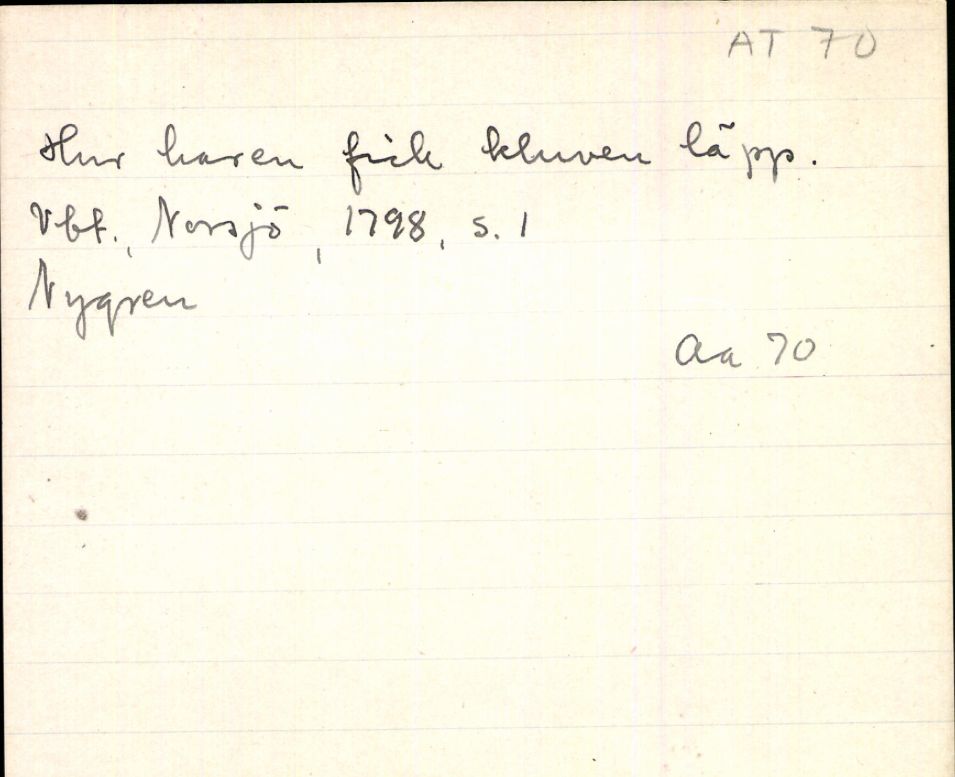 AT 70
Hur haren fick kluven läpp.
Vbt., Norsjö, 1798, s. 1
Nygren
Aa 70